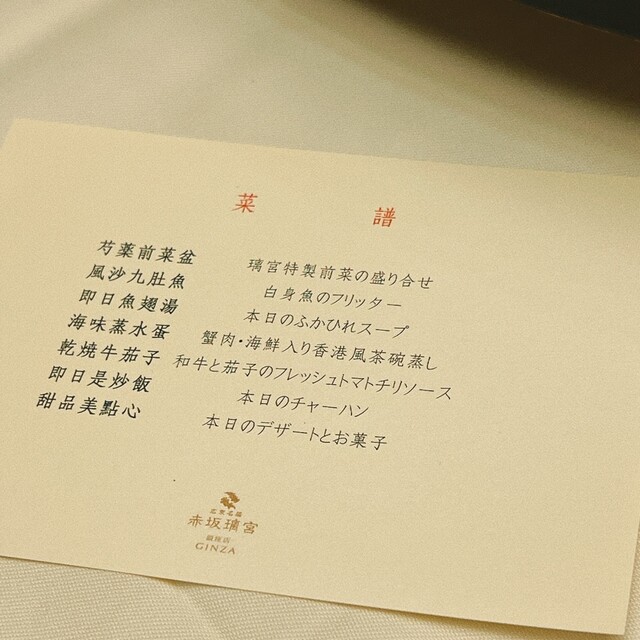 菜 譜
芍薬前菜盆 璃宮特製前菜の盛り合せ
風沙九肚魚 白身魚のフリッター
即日魚翅湯 本日のふかひれスープ
海味蒸水蛋 蟹肉・海鮮入り香港風茶碗蒸し
乾焼牛茄子 和牛と茄子のフレッシュトマトチリソース
即日是炒飯 本日のチャーハン
甜品美點心 本日のデザートとお菓子
赤坂璃宮
銀座店
GINZA